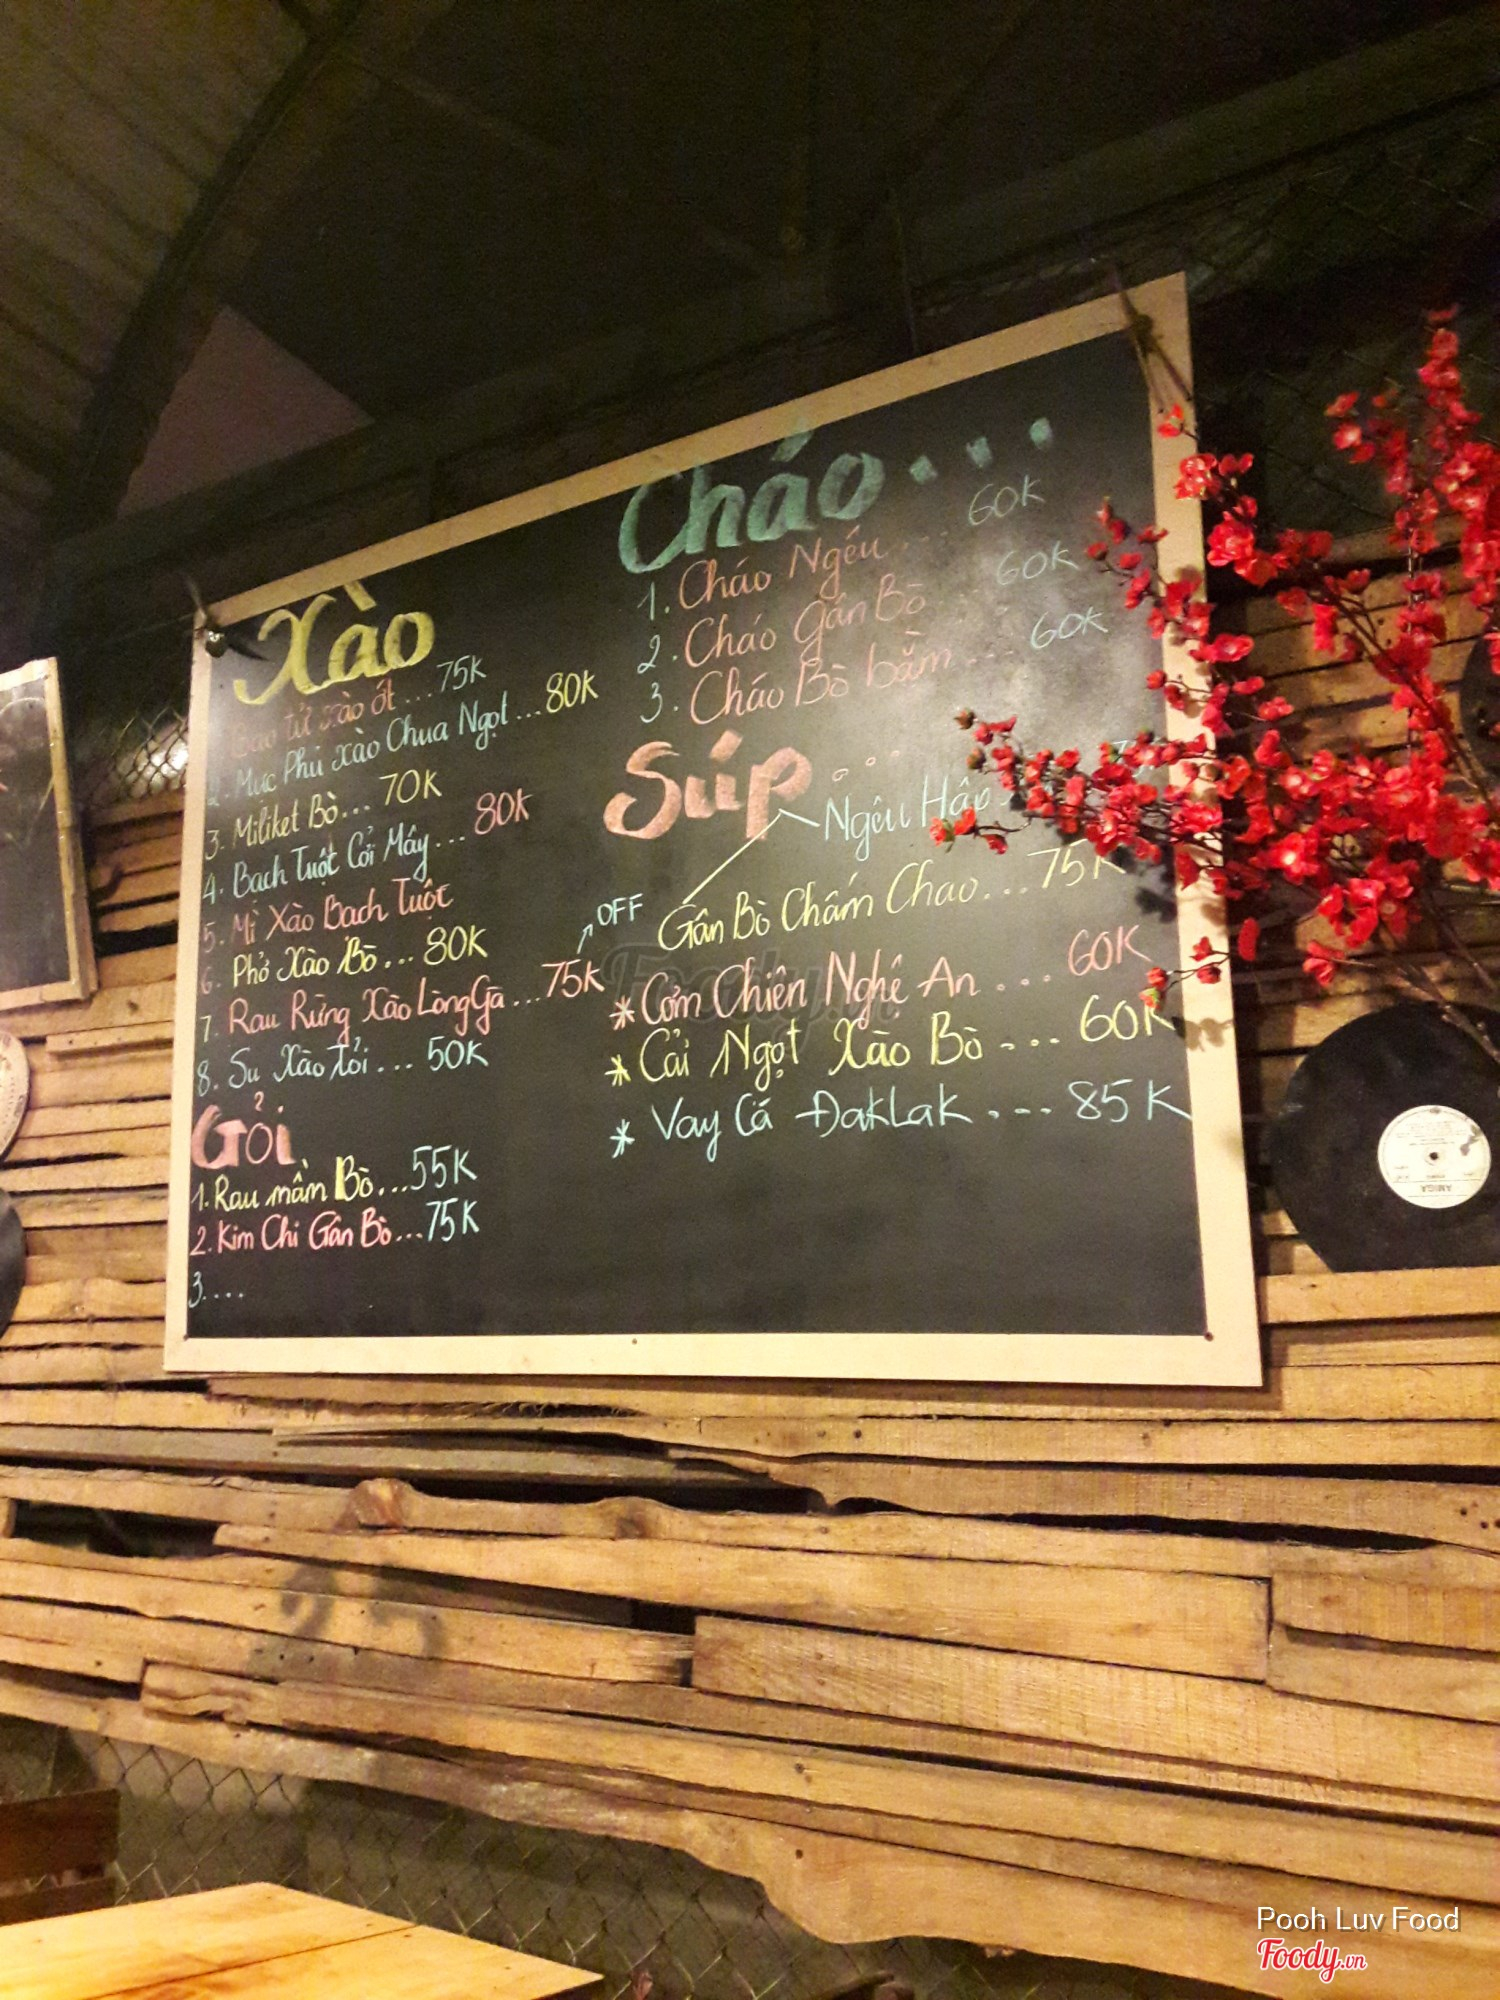 Xào
1. Bao tử xào ớt...75K
2. Mực Phủ xào Chua Ngọt...80K
3. Miliket Bò... 70K
4. Bạch Tuột Cởi Mây... 80K
5. Mì Xào Bạch Tuộc
6. Phở Xào Bò... 80K
7. Rau Rừng Xào Lòng Gà...75K
OFF
8. Su Xào tỏi.... 50K
Gỏi
1. Rau mầm Bò....55K
2. Kim Chi Gân Bò....75K
3....
Cháo...
1. Cháo Ngêu... 60K
2. Cháo Gân Bò 60K
3. Cháo Bò bằm... 60K
Súp....
Ngêu Hấp
Gân Bò Chấm Chao...75K
* Cơm Chiên Nghệ An ... 60K
* Cải Ngọt Xào Bò ... 60K
* Vay Cá ĐakLak.... 85K
AMIGA
Foody.vn
Pooh Luv Food
Foody.vn